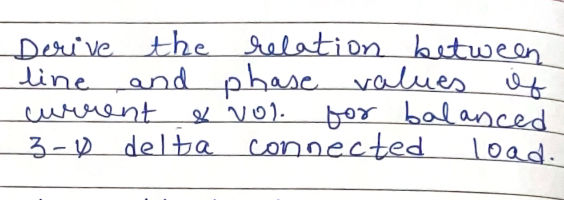 Derive the relation between
line and phase values of
current & vol. for balanced
3-φ delta connected load.